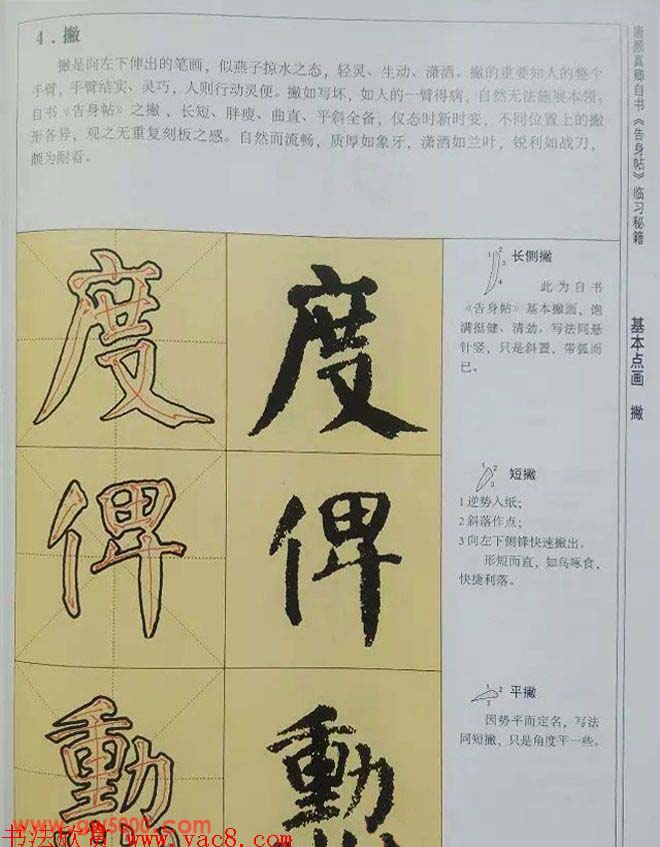 4．撇
撇是向左下伸出的笔画，似燕子掠水之态，轻灵、生动、潇洒。撇的重要如人的整个
手臂，手臂结实、灵巧，人则行动灵便。撇如写坏，如人的一臂得病，自然无法施展本领。
自书《告身帖》之撇，长短、胖瘦、曲直、平斜全备，仪态时新时变，不同位置上的撇
形各异，观之无重复刻板之感。自然而流畅，质厚如象牙，潇洒如兰叶，锐利如战刀，
颇为耐看。
度 度
1 2 3 4 长侧撇
此为自书
《告身帖》基本撇画，饱
满挺健、清劲。写法同悬
针竖，只是斜置，带弧而
已。
俾 俾
1 2 3 短撇
1逆势入纸；
2斜落作点；
3向左下侧锋快速撇出。
形短而直，如鸟啄食，
快捷利落。
動 動
1 2 3 平撇
因势平而定名，写法
同短撇，只是角度平一些。
唐颜真卿自书《告身帖》临习秘籍
基本点画 撇
书法欣赏 www.yac8.com